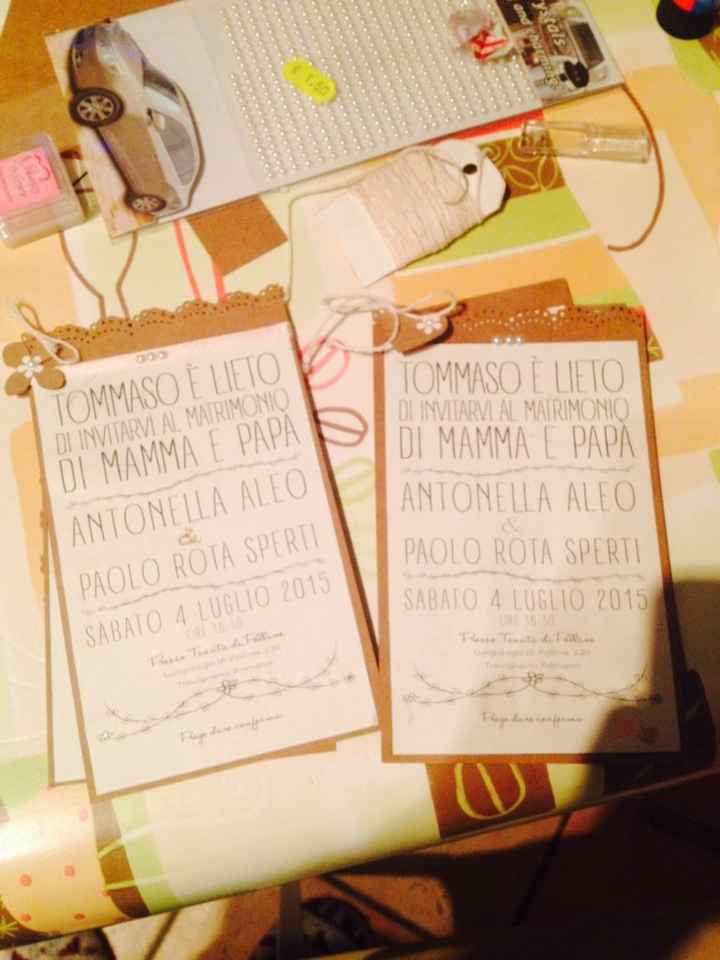 € 1,50
TOMMASO È LIETO
DI INVITARVI AL MATRIMONIO
DI MAMMA E PAPÀ
ANTONELLA ALEO
&
PAOLO ROTA SPERTI
SABATO 4 LUGLIO 2015
ORE 16:30
Presso Tenuta di Polline
Lungolago di Polline
Trevignano Romano
Prego dare conferma
TOMMASO È LIETO
DI INVITARVI AL MATRIMONIO
DI MAMMA E PAPÀ
ANTONELLA ALEO
&
PAOLO ROTA SPERTI
SABATO 4 LUGLIO 2015
ORE 16:30
Presso Tenuta di Polline
Lungolago di Polline
Trevignano Romano
Prego dare conferma